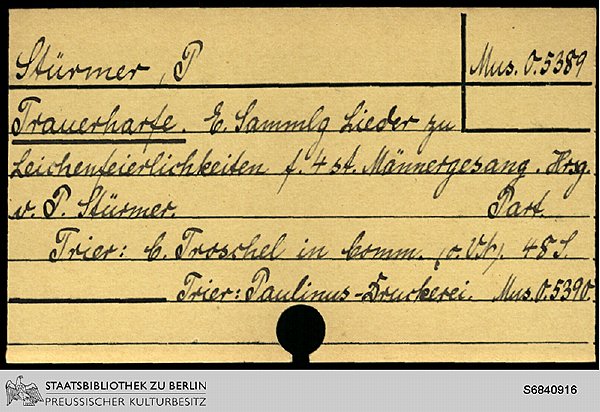 Stürmer, P
Mus. O. 5389
Trauerharfe. E. Sammlg Lieder zu
Leichenfeierlichkeiten f. 4 st. Männergesang. Hrsg.
v. P. Stürmer. Part.
Trier: C. Troschel in Comm. 48 S.
Trier: Paulinus-Druckerei. Mus. O. 5390.
STAATSBIBLIOTHEK ZU BERLIN
PREUSSISCHER KULTURBESITZ
S6840916